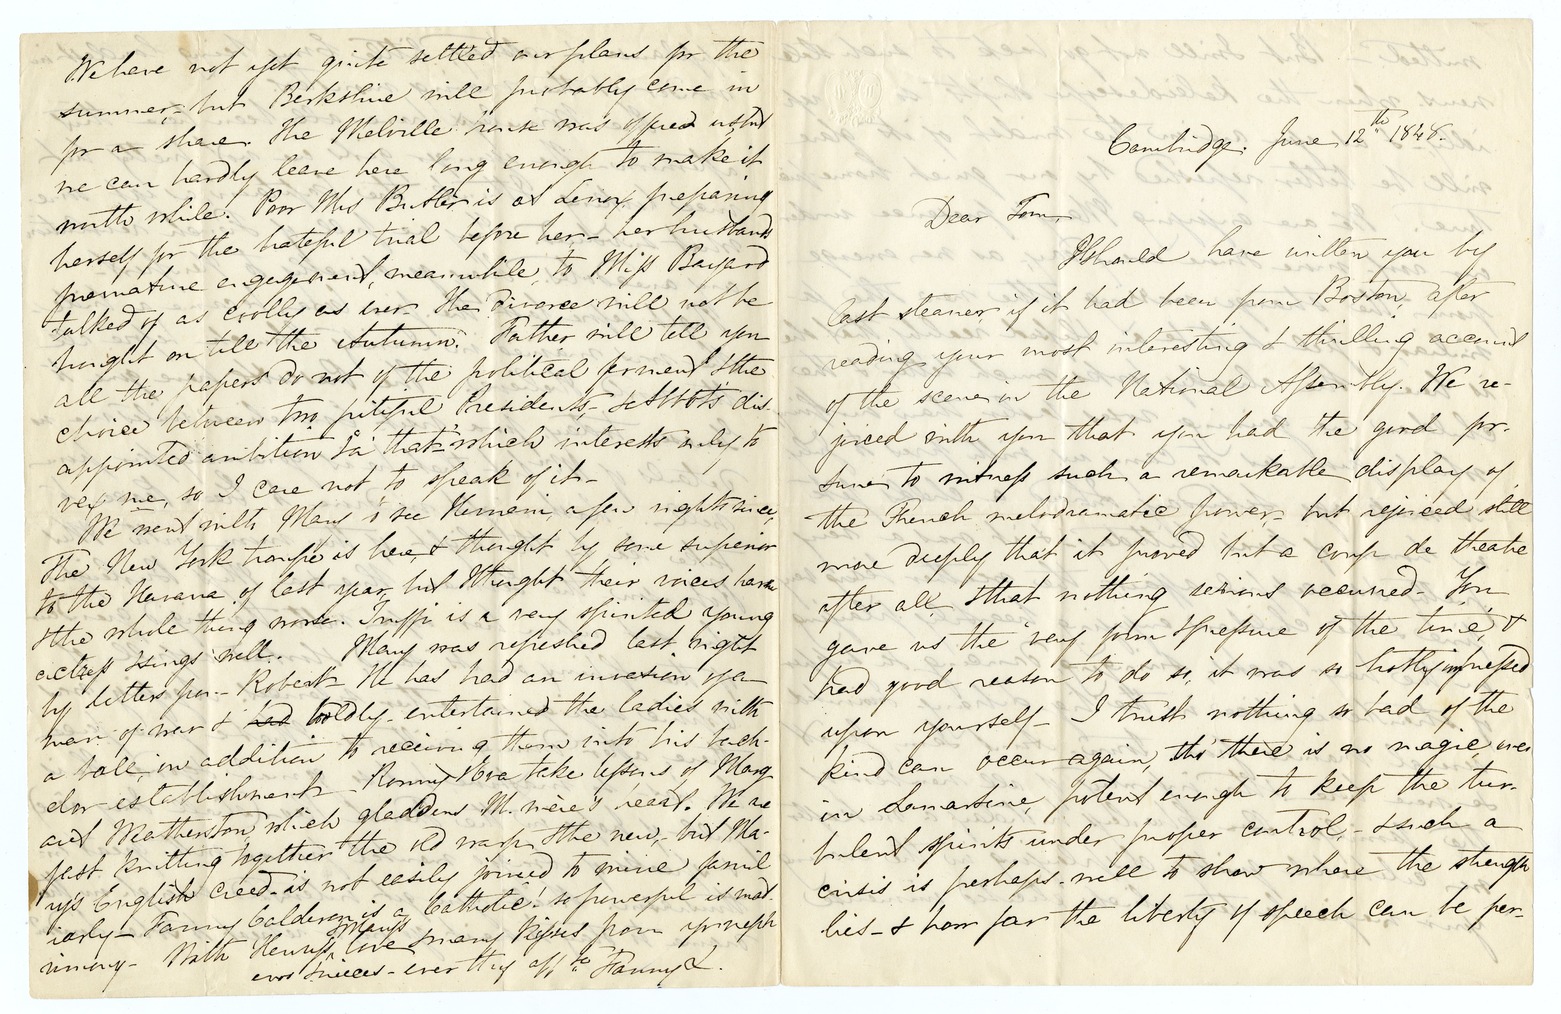 Cambridge. June 12th 1848.
Dear Tom,
I should have written you by
last steamer if it had been from Boston, after
reading your most interesting & thrilling account
of the scene in the National Assembly. We re-
joiced with you that you had the good for-
tune to witness such a remarkable display of
the French melodramatic power – but rejoiced still
more deeply that it proved but a coup de theatre
after all, & that nothing serious occurred. You
gave us the "very form & pressure of the time", &
had good reason to do so, it was so hotly impressed
upon yourself – I trust nothing so bad of the
kind can occur again, tho' there is no magic, even
in Lamartine, potent enough to keep the tur-
bulent spirits under proper control, – & such a
crisis is perhaps well to show where the strength
lies – & how far the liberty of speech can be per-
We have not yet quite settled our plans for the
summer, – but Berkshire will probably come in
for a share. The Melville house was offered us but
we can hardly leave here long enough to make it
worth while. Poor Mrs Butler is at Lenox preparing
herself for the hateful trial before her – her husband's
premature engagement, meanwhile, to Miss Bayard
talked of as coolly as ever. The divorce will not be
brought on till the Autumn. Father will tell you
all the papers do not of the political ferment & the
choice between two pitiful Presidents – & Abbott's dis-
appointed ambition &a that which interests only to
vex me, so I care not to speak of it –
We went with Mary to see Hernani, a few nights since,
The New York troupe is here, & thought by some superior
to the Havana of last year, but I thought their voices harsh
& the whole thing worse. Truffi is a very spirited young
actress & sings well. Mary was refreshed last night
by letters from Robert. He has had an invasion of a
man of war & had boldly entertained the ladies with
a ball, in addition to receiving them into his bach-
elor establishment – Ronny & Eva take lessons of Marg
aret Matherston which gladdens M. mère's heart. We are
fast knitting together the old warp & the new, – but Ma-
ry's English creed is not easily joined to mine famil
iarly – Fanny Calderon is a Catholic! so powerful is mat-
rimony – With Henry's & Mary's love & many kisses from yr neph
ews & nieces – ever thy affte Fanny L.